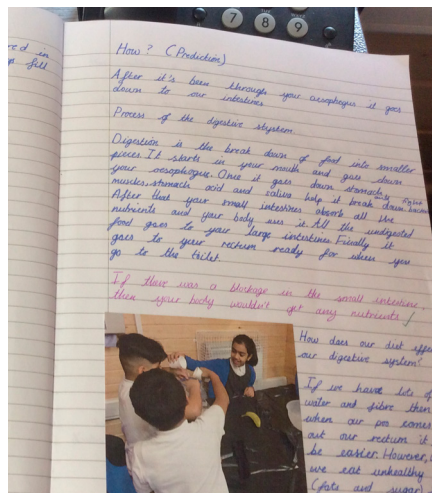 7 8 9
red in
fill
How? (Prediction)
After it's been through your oesophagus it goes
down to our intestines
Process of the digestive stystem.
Digestion is the break down of food into smaller
pieces. It starts in your mouth and goes down
your oesophagus. Once it goes down stomach
muscles, stomach acid and saliva help it break down
After that your small intestines absorb all the
nutrients and your body uses it. All the undigested
food goes to your large intestines. Finally it
goes to your rectum ready for when you
go to the toilet.
If there was a blockage in the small intestine,
then your body wouldn't get any nutrients ✓
How does our diet effe
our digestive system?
If we have lots of
water and fibre then
when our poo comes
out our rectum it
be easier. However,
we eat unhealthy
(fats and sugar)